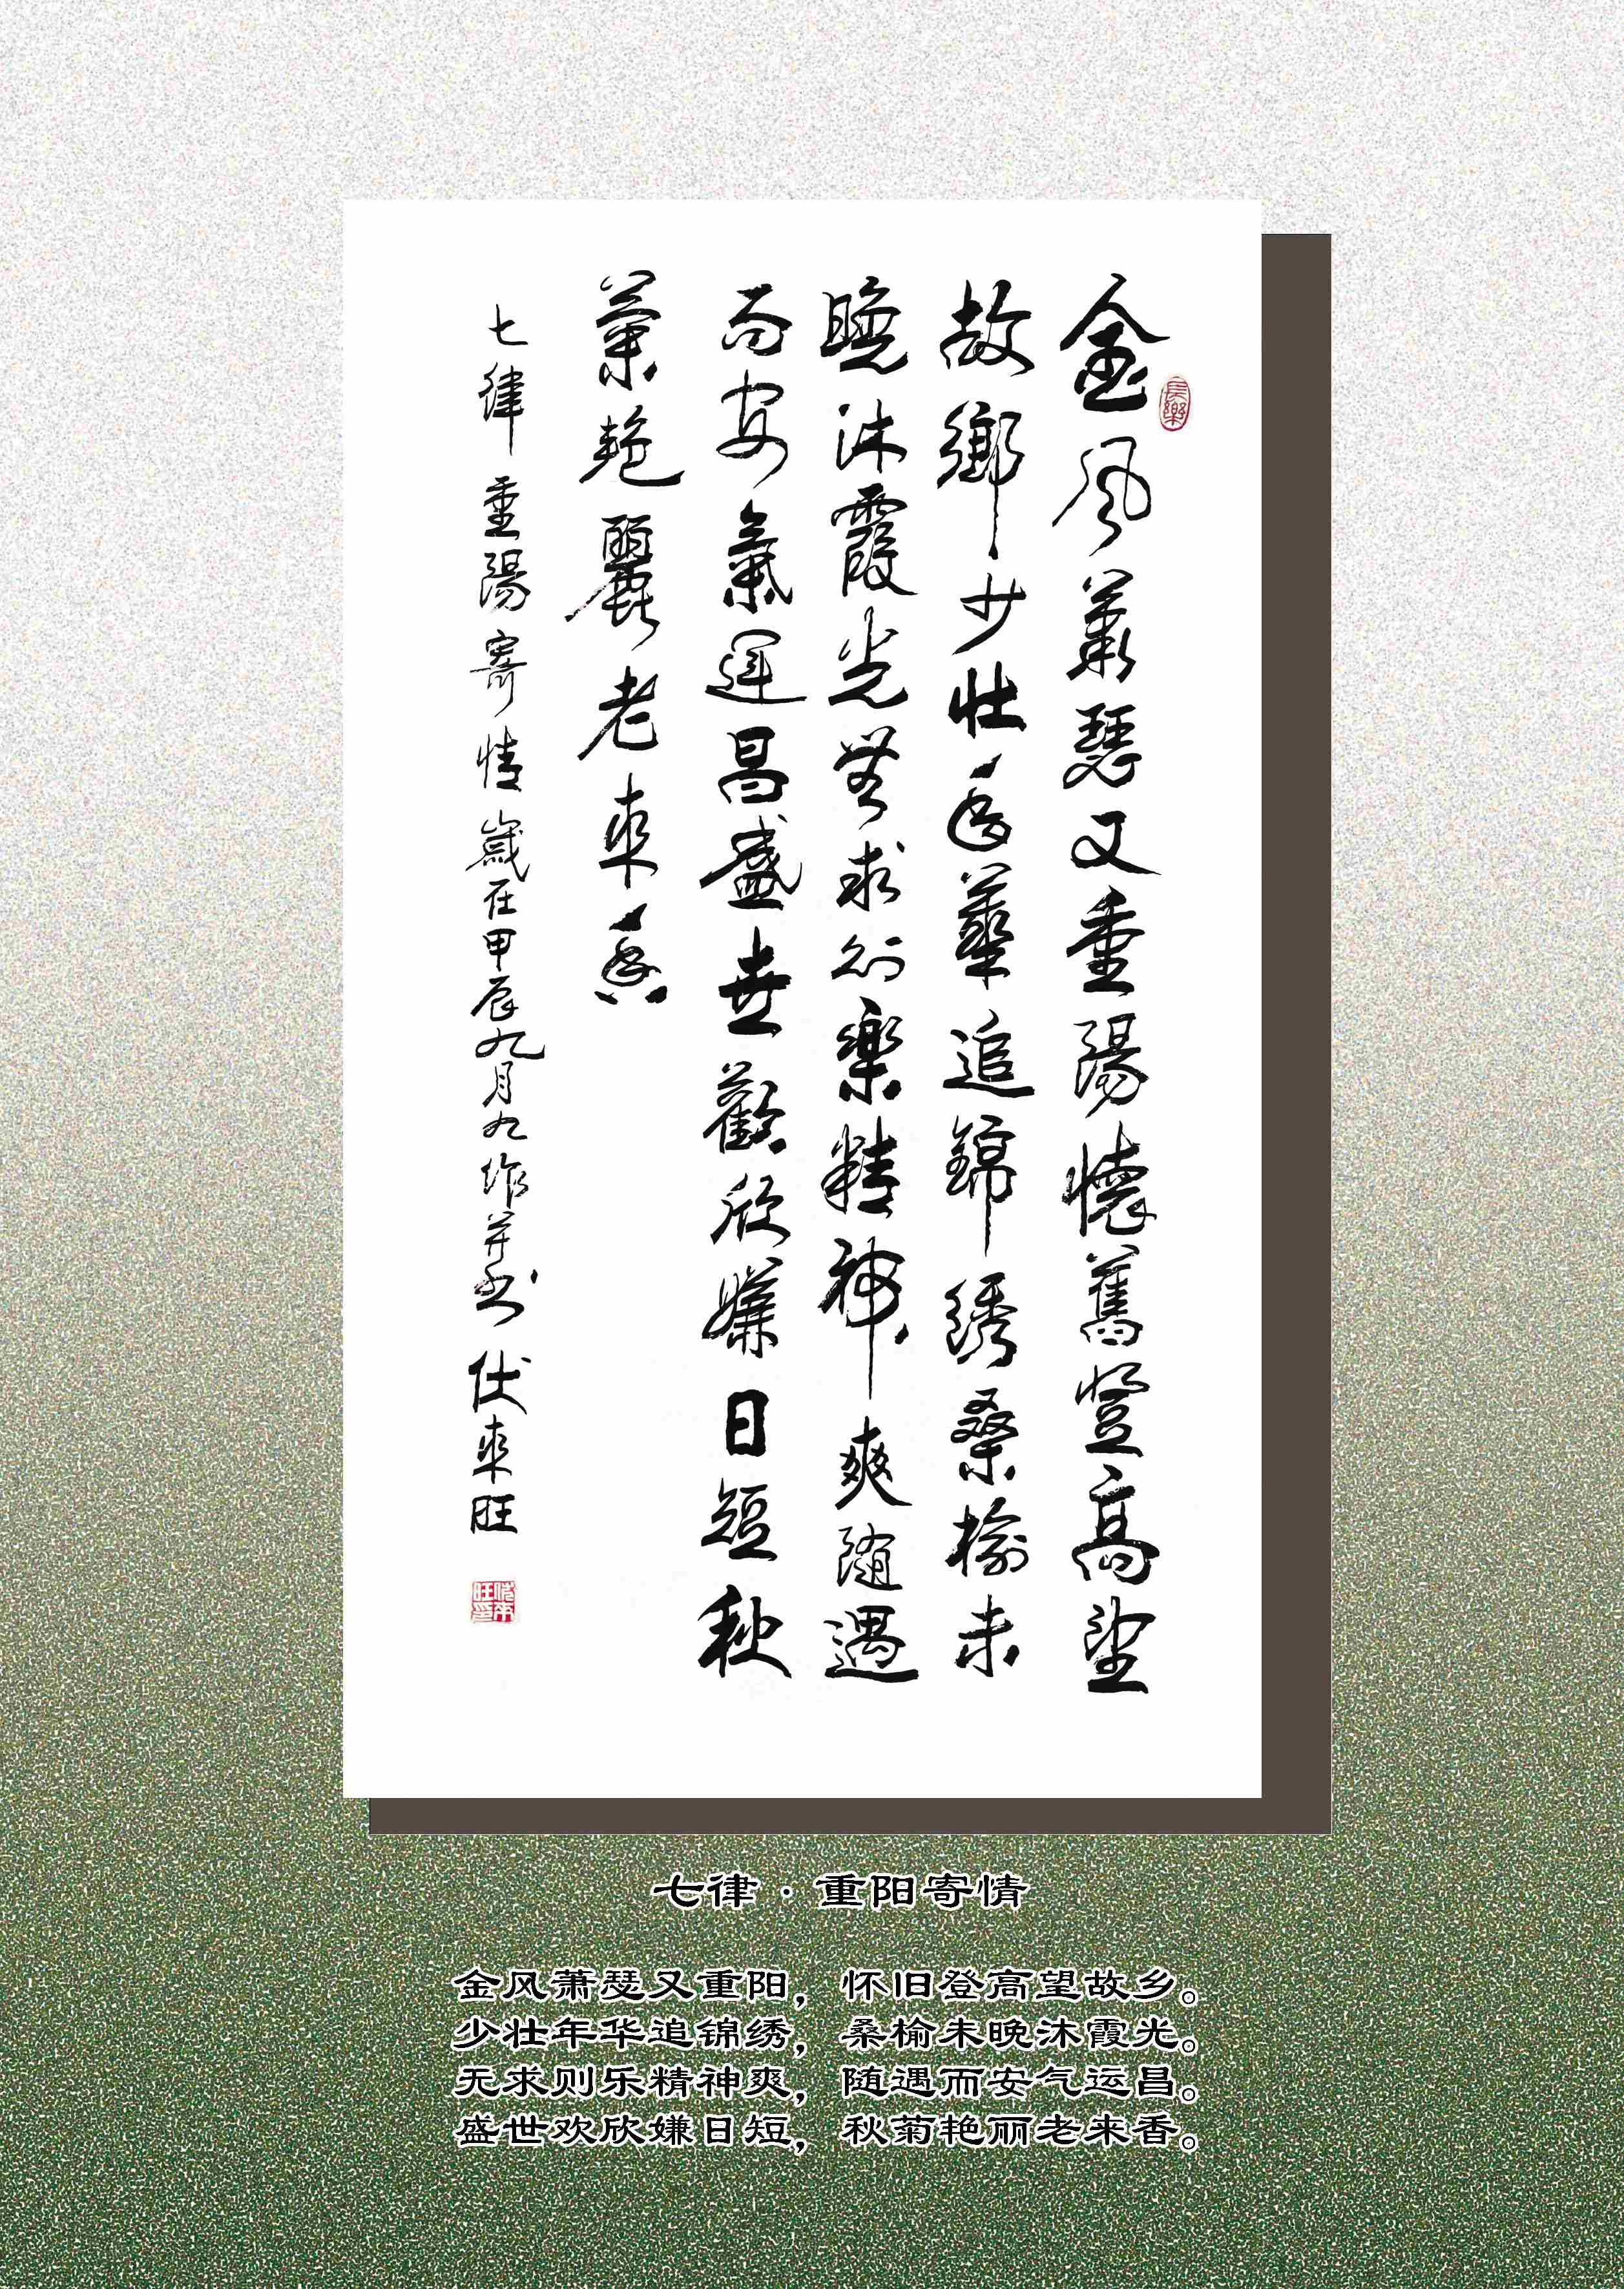 金風蕭瑟又重陽懷舊登高望
故鄉少壯年華追錦綉桑榆未
晚沐霞光無求則樂精神爽隨遇
而安氣運昌盛世歡欣嫌日短秋
菊艳麗老來香
七律重陽寄情歲在甲辰九月九作并书伏來旺
長樂
伏來旺印
七律·重阳寄情
金风萧瑟又重阳，怀旧登高望故乡。
少壮年华追锦绣，桑榆未晚沐霞光。
无求则乐精神爽，随遇而安气运昌。
盛世欢欣嫌日短，秋菊艳丽老来香。